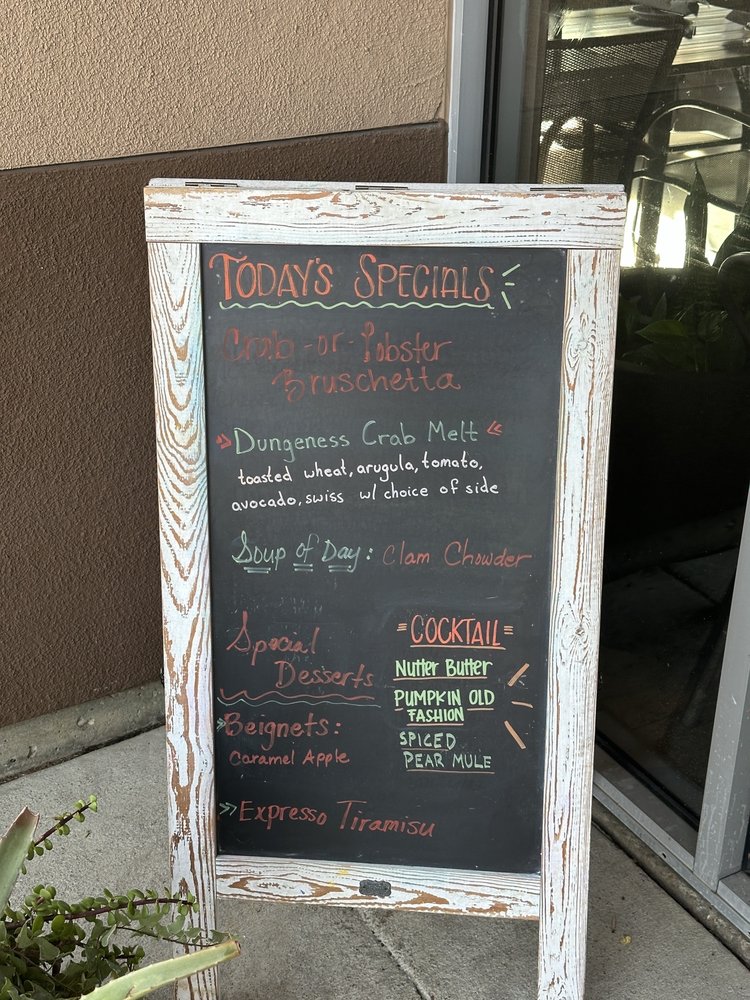 TODAY'S SPECIALS
Crab -or- Lobster
Bruschetta
Dungeness Crab Melt
toasted wheat, arugula, tomato,
avocado, swiss w/ choice of side
Soup of Day: Clam Chowder
Special
Desserts
Beignets:
Caramel Apple
Expresso Tiramisu
=COCKTAIL=
Nutter Butter
PUMPKIN OLD
FASHION
SPICED
PEAR MULE